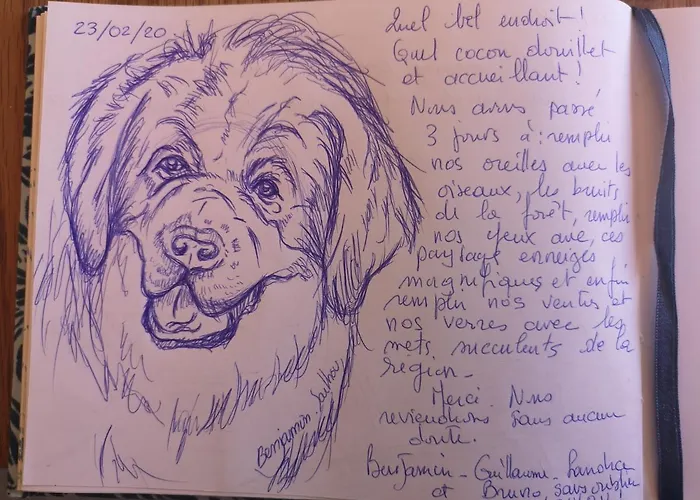 23/02/20
Quel bel endroit !
Quel cocon douillet
et accueillant !
Nous avons passé
3 jours à : remplir
nos oreilles avec les
oiseaux, les bruits
de la forêt, remplir
nos yeux avec ces
paysage enneigés
magnifiques et enfin
remplir nos ventres et
nos verres avec les
mets succulents de la
région.
Merci. Nous
reviendrons sans aucun
doute.
Benjamin - Guillaume -
et Bruno sans oublier
Benjamin